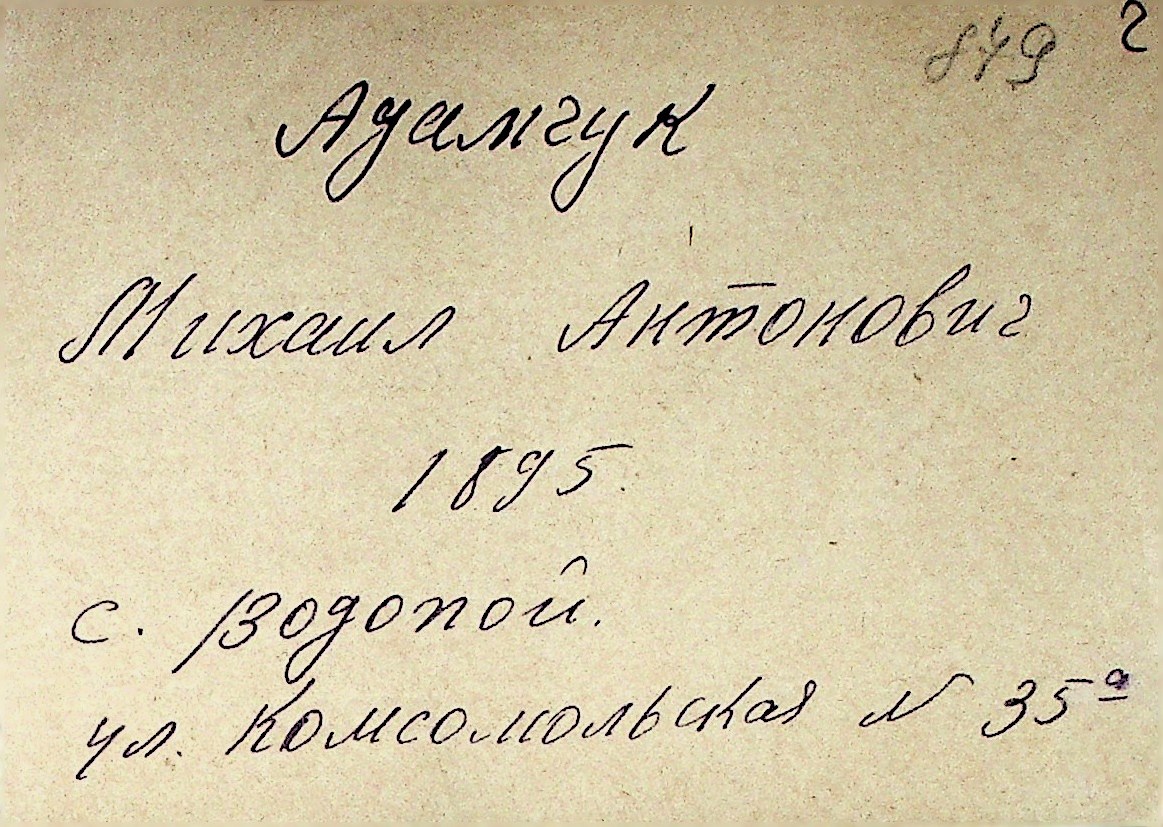 879 2
Адамчук
Михаил Антонович
1895.
с. Водопой.
ул. Комсомольская № 35а